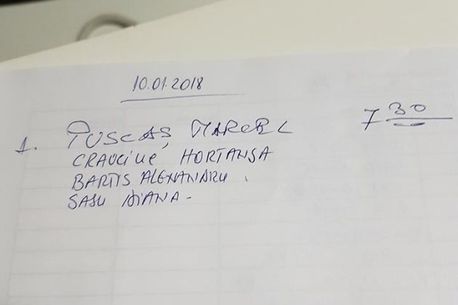 10.01.2018
1. PUSCAȘ MARCEL 7 30
CRACIUC HORTANSA
BARTIS ALEXANDRU.
SASU DIANA-